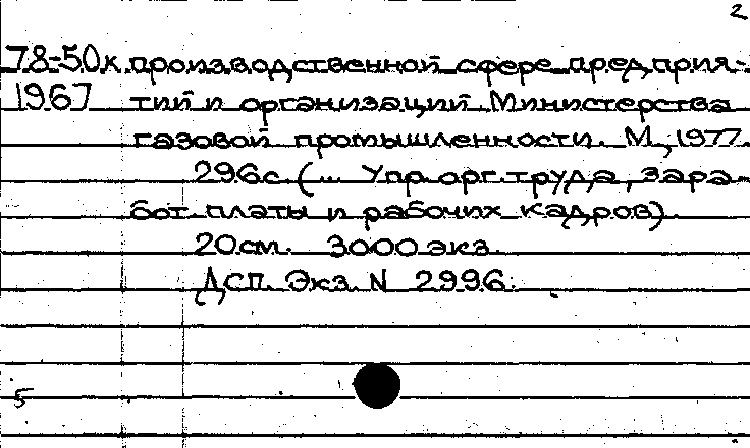 2
78-50к производственной сфере предприя-
1967 тий и организаций Министерства
газовой промышленности. М., 1977.
296с. (... Упр. орг. труда, зара-
бот. платы и рабочих кадров).
20см. 3000 экз.
ДСП. Экз. N 2996.
5